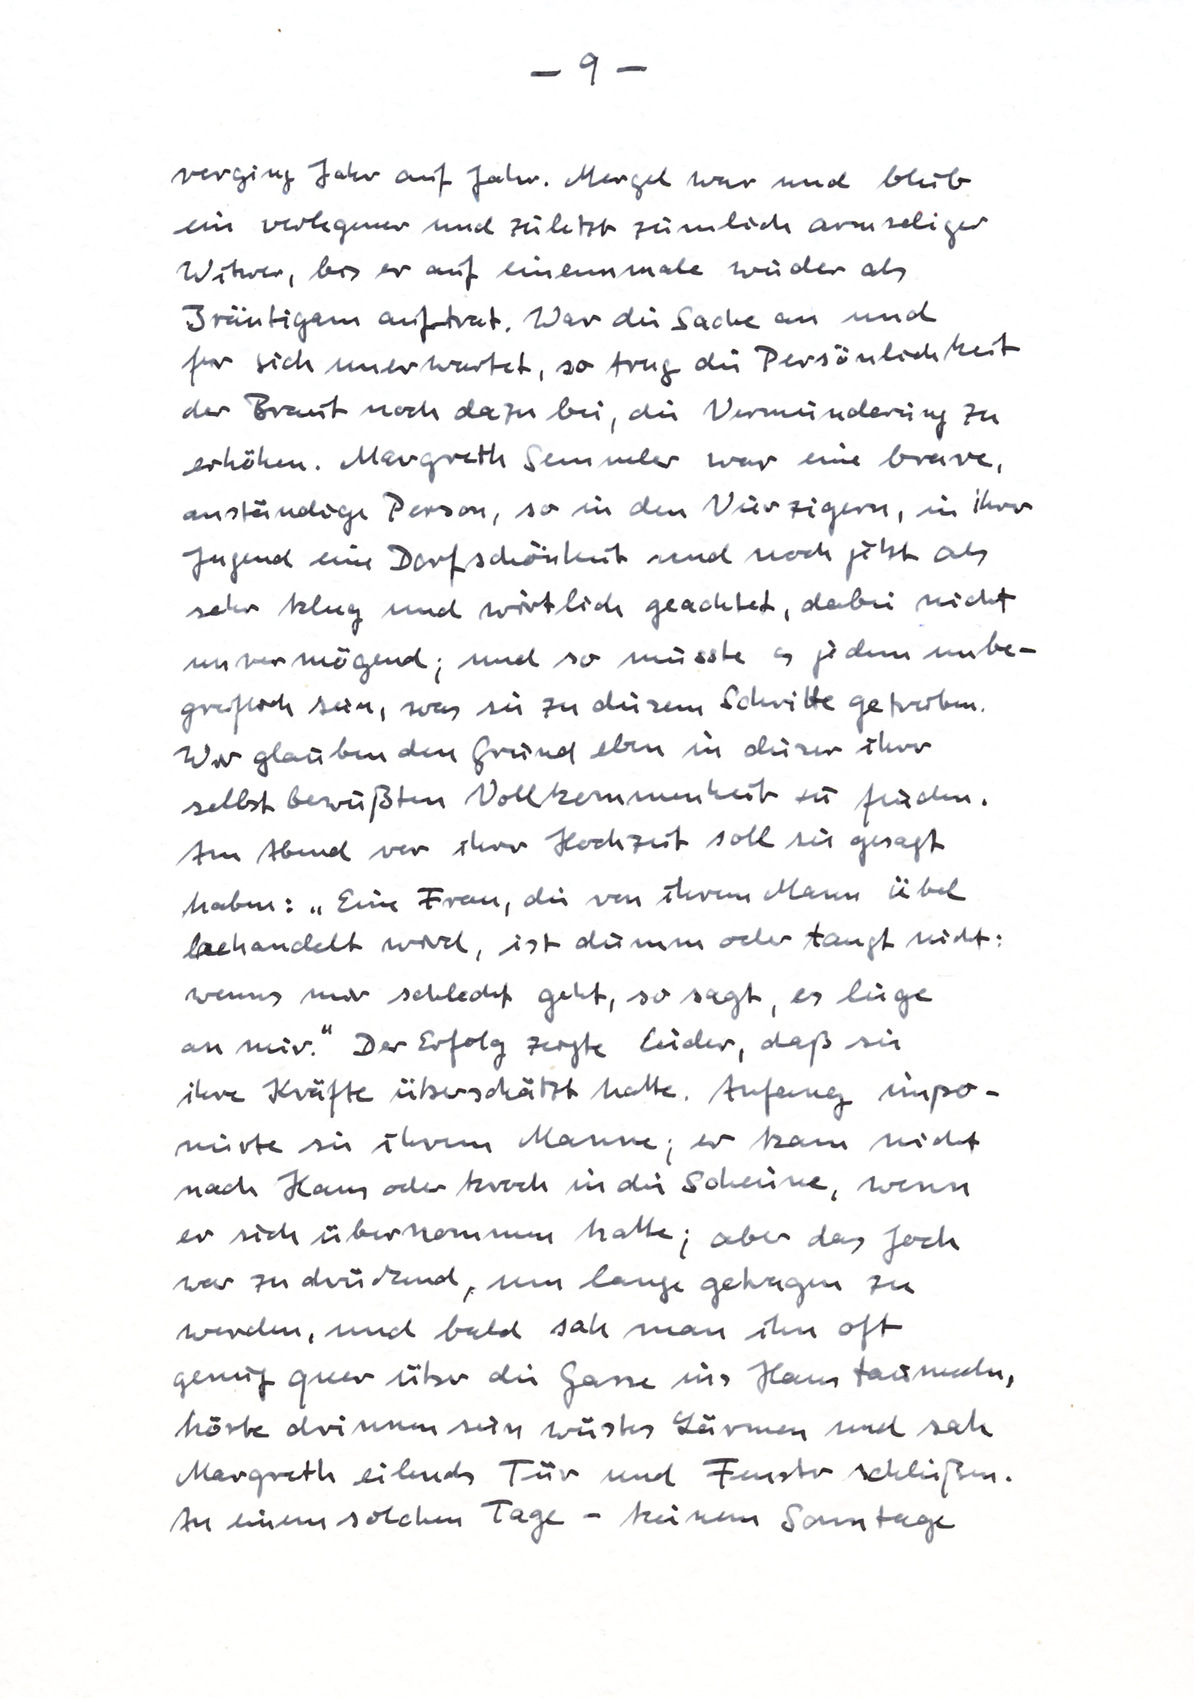 – 9 –
verging Jahr auf Jahr. Mergel war und blieb
ein verlegener und zuletzt ziemlich armseliger
Witwer, bis er auf einenmale wieder als
Bräutigam auftrat. War die Sache an und
für sich unerwartet, so trug die Persönlichkeit
der Braut noch dazu bei, die Verwunderung zu
erhöhen. Margreth Semmler war eine brave,
anständige Person, so in den Vierzigern, in ihrer
Jugend eine Dorfschönheit und noch jetzt als
sehr klug und wirtlich geachtet, dabei nicht
unvermögend; und so musste es jedem unbe-
greiflich sein, was sie zu diesem Schritte getrieben.
Wir glauben den Grund eben in dieser ihrer
selbst bewußten Vollkommenheit zu finden.
Am Abend vor ihrer Hochzeit soll sie gesagt
haben: „Eine Frau, die von ihrem Mann übel
behandelt wird, ist dumm oder taugt nicht:
wenns mir schlecht geht, so sagt, es liege
an mir.“ Der Erfolg zeigte leider, daß sie
ihre Kräfte überschätzt hatte. Anfang impo-
nierte sie ihrem Manne; er kam nicht
nach Haus oder kroch in die Scheune, wenn
er sich übernommen hatte; aber das Joch
war zu drückend, um lange getragen zu
werden, und bald sah man ihn oft
genug quer über die Gasse ins Haus taumeln,
hörte drinnen sein wüstes Lärmen und sah
Margreth eilends Tür und Fenster schließen.
An einem solchen Tage – keinem Sonntage